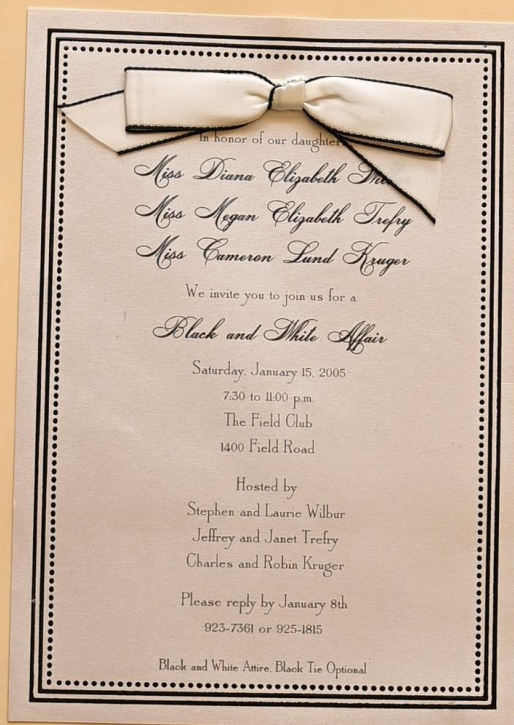 In honor of our daughters
Miss Diana Elizabeth
Miss Megan Elizabeth Trefry
Miss Cameron Lund Kruger
We invite you to join us for a
Black and White Affair
Saturday, January 15, 2005
7:30 to 11:00 p.m.
The Field Club
1400 Field Road
Hosted by
Stephen and Laurie Wilbur
Jeffrey and Janet Trefry
Charles and Robin Kruger
Please reply by January 8th
923-7361 or 925-1815
Black and White Attire, Black Tie Optional